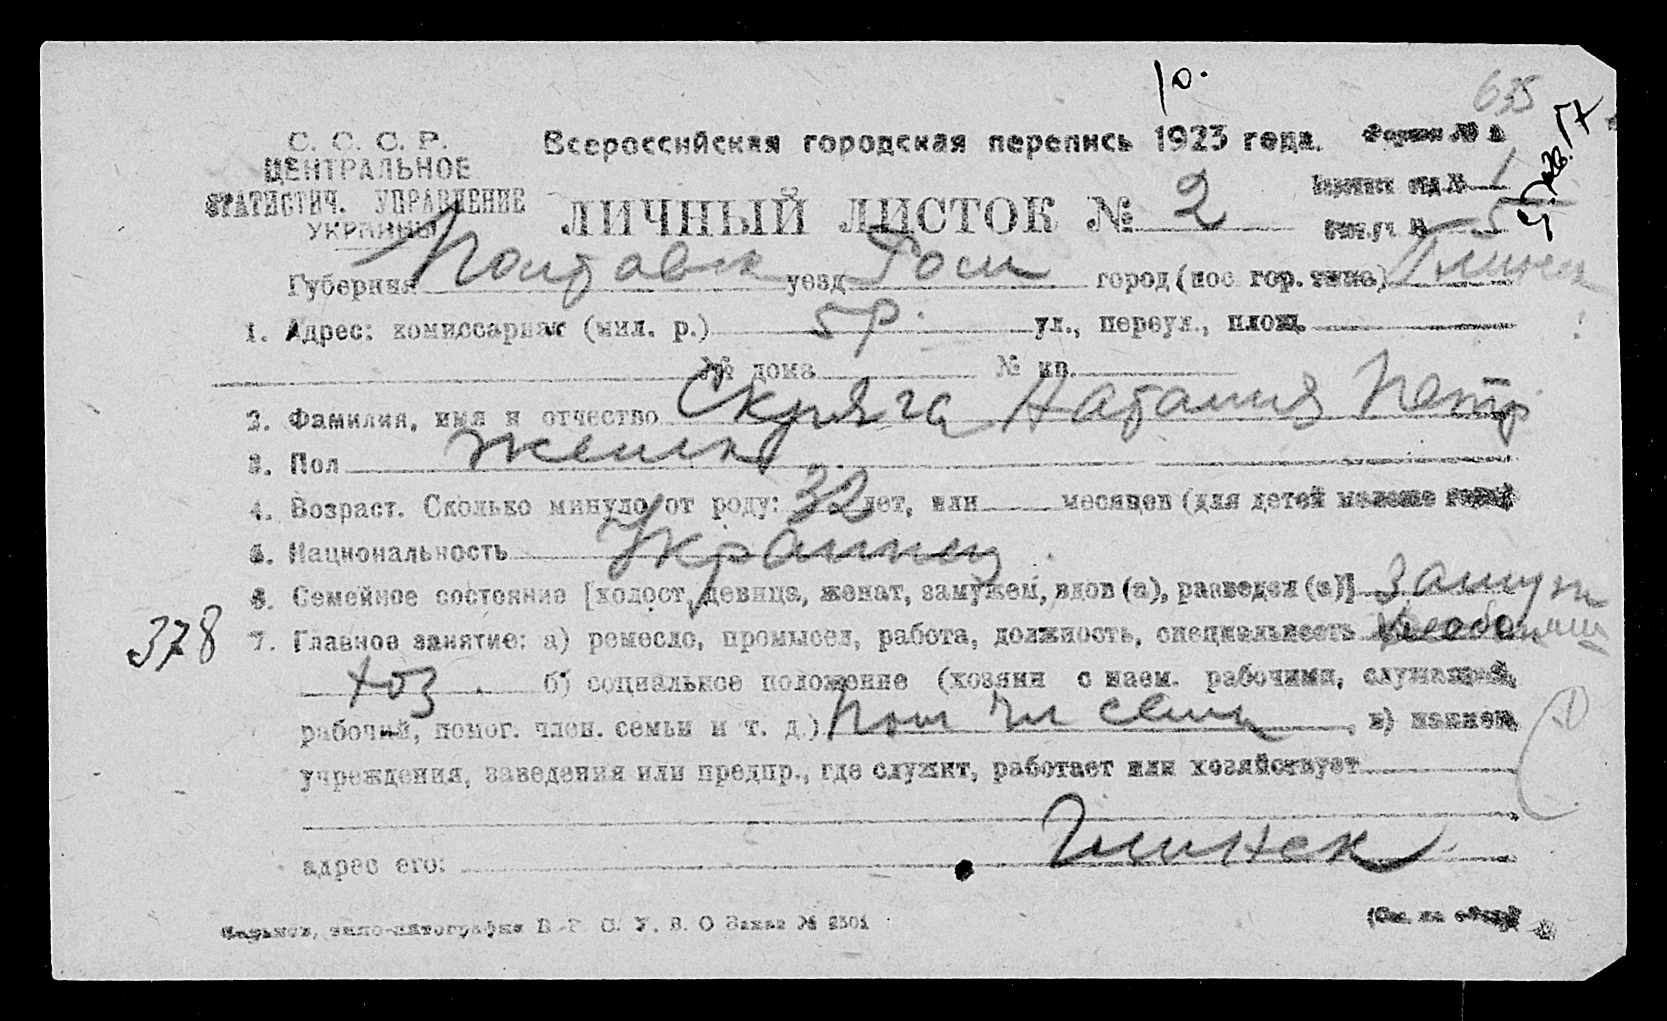 10.
635
С. С. С. Р.
ЦЕНТРАЛЬНОЕ
СТАТИСТИЧ. УПРАВЛЕНИЕ
УКРАИНЫ
Всероссийская городская перепись 1923 года.
Форма № А
ЛИЧНЫЙ ЛИСТОК № 2
отд. № 1
уч. № 5
Губерния Полтавск уезд Ром город (пос. гор. типа) Глинск
1. Адрес: комиссариат (мил. р.) 5 р. ул., переул., площ.
№ дома № кв.
2. Фамилия, имя и отчество Скряга Наталия Петр
3. Пол женск
4. Возраст. Сколько минуло от роду: 32 лет, или месяцев (для детей моложе года)
5. Национальность Украинец
6. Семейное состояние [холост, девица, женат, замужем, вдов (а), разведен (а)] Замуж
378
7. Главное занятие: а) ремесло, промысел, работа, должность, специальность
хоз. б) социальное положение (хозяин с наем. рабочими, служащий,
рабочий, помог. член. семьи и т. д.) пом чл семи, в) наимен.
учреждения, заведения или предпр., где служит, работает или хозяйствует
адрес его: Глинск
Харьков, типо-литография В. У. С. У. В. О Заказ № 2501
(См. на обор.)